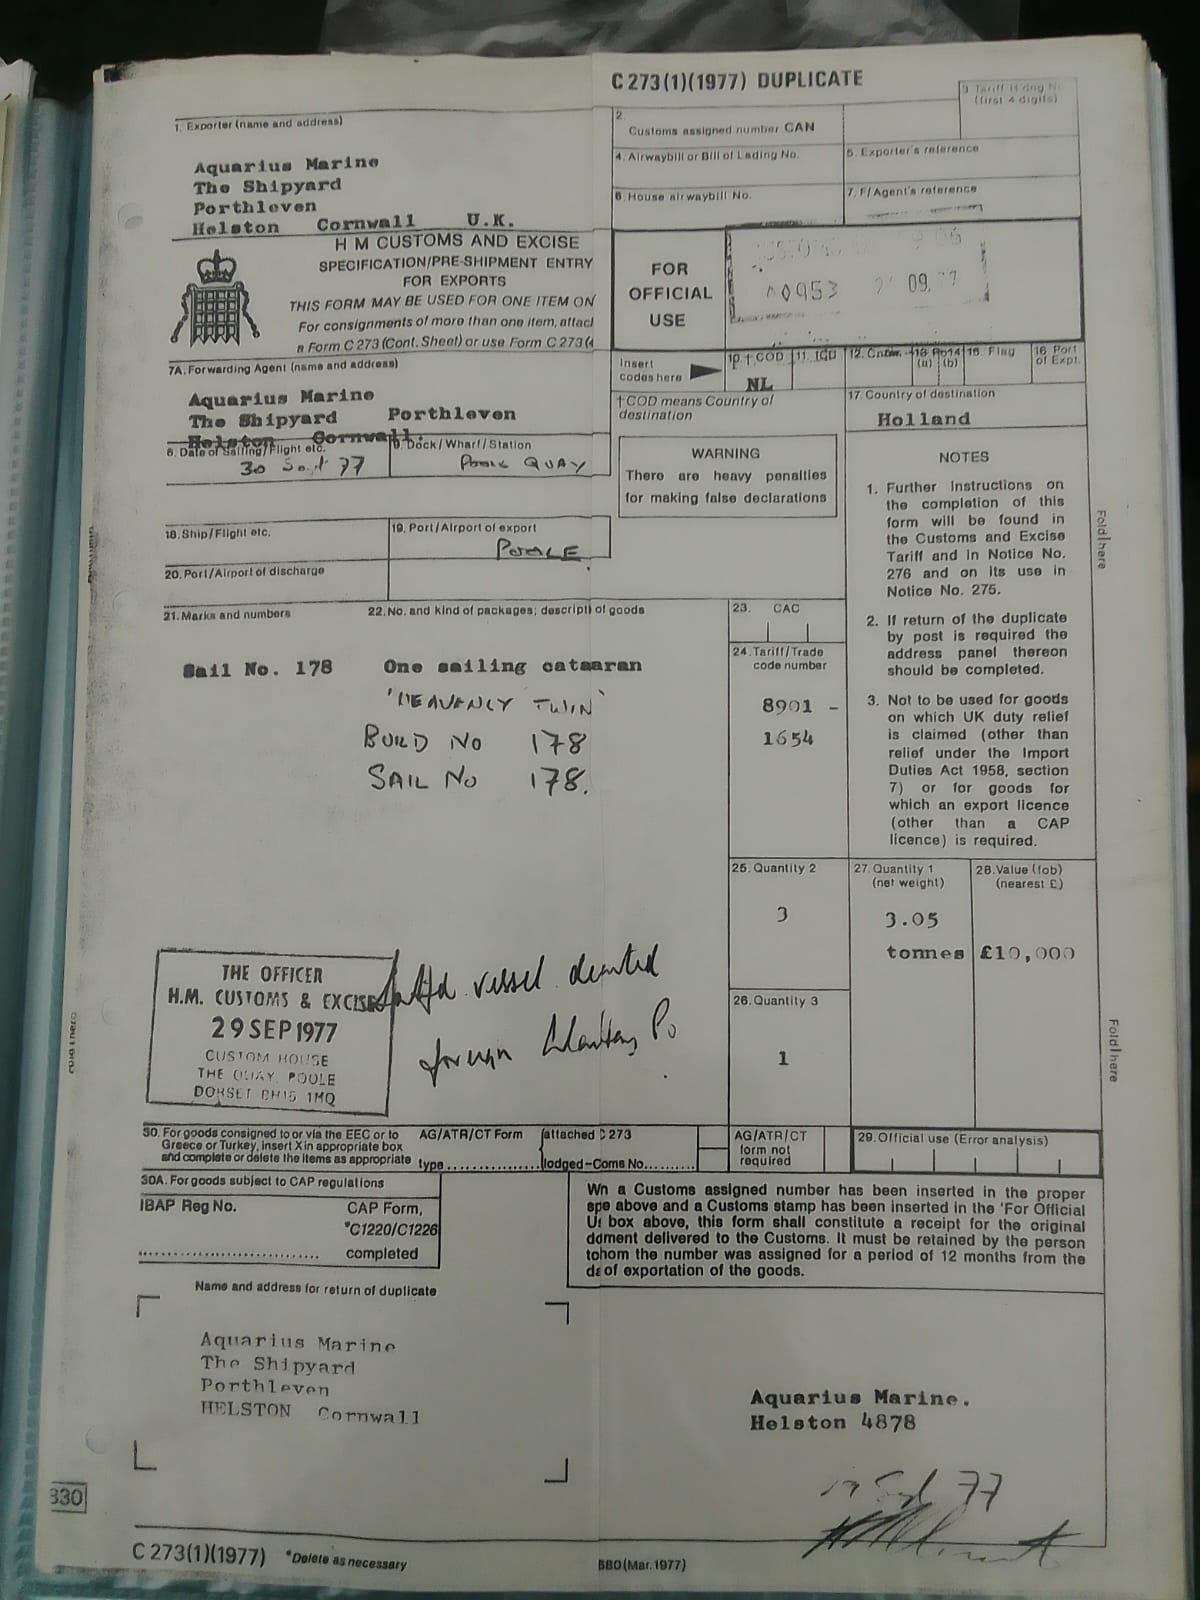 C 273(1)(1977) DUPLICATE
1. Exporter (name and address)
Aquarius Marine
The Shipyard
Porthleven
Helston Cornwall U.K.
2.
Customs assigned number CAN
(first 4 digits)
4. Airwaybill or Bill of Lading No.
5. Exporter's reference
6. House airwaybill No.
7. F/Agent's reference
H M CUSTOMS AND EXCISE
SPECIFICATION/PRE-SHIPMENT ENTRY
FOR EXPORTS
THIS FORM MAY BE USED FOR ONE ITEM ON
For consignments of more than one item, attacl
a Form C 273 (Cont. Sheet) or use Form C 273 (
FOR
OFFICIAL
USE
0953 09.77
7A. Forwarding Agent (name and address)
Aquarius Marine
The Shipyard Porthleven
Helston Cornwall.
Insert
codes here
10. † COD
NL
11. ICD
15. Flag
16. Port
of Expt.
†COD means Country of
destination
17. Country of destination
Holland
8. Date of Sailing/Flight etc.
30 Sept 77
9. Dock/Wharf/Station
POOLE QUAY
WARNING
There are heavy penalties
for making false declarations
18. Ship/Flight etc.
19. Port/Airport of export
POOLE
20. Port/Airport of discharge
NOTES
1. Further instructions on
the completion of this
form will be found in
the Customs and Excise
Tariff and in Notice No.
276 and on its use in
Notice No. 275.
2. If return of the duplicate
by post is required the
address panel thereon
should be completed.
3. Not to be used for goods
on which UK duty relief
is claimed (other than
relief under the Import
Duties Act 1958, section
7) or for goods for
which an export licence
(other than a CAP
licence) is required.
Fold here
21. Marks and numbers
22. No. and kind of packages; descripti of goods
23. CAC
Sail No. 178 One sailing cataaran
'HEAVENLY TWIN'
BUILD No 178
SAIL No 178.
24. Tariff/Trade
code number
8901 -
1654
25. Quantity 2
3
27. Quantity 1
(net weight)
3.05
tonnes
28. Value (fob)
(nearest £)
£10,000
26. Quantity 3
1
THE OFFICER
H.M. CUSTOMS & EXCISE
29 SEP 1977
CUSTOM HOUSE
THE QUAY, POOLE
DORSET BH15 1MQ
vessel
foreign
Fold here
30. For goods consigned to or via the EEC or to
Greece or Turkey, insert X in appropriate box
and complete or delete the items as appropriate
AG/ATR/CT Form
type
attached C 273
lodged-Coms No.
AG/ATR/CT
form not
required
29. Official use (Error analysis)
30A. For goods subject to CAP regulations
IBAP Reg No.
CAP Form,
*C1220/C1226
completed
Wh a Customs assigned number has been inserted in the proper
spe above and a Customs stamp has been inserted in the 'For Official
Us box above, this form shall constitute a receipt for the original
ddment delivered to the Customs. It must be retained by the person
tohom the number was assigned for a period of 12 months from the
da of exportation of the goods.
Name and address for return of duplicate
Aquarius Marine
The Shipyard
Porthleven
HELSTON Cornwall
Aquarius Marine.
Helston 4878
77
330
C 273(1)(1977) *Delete as necessary
680 (Mar. 1977)